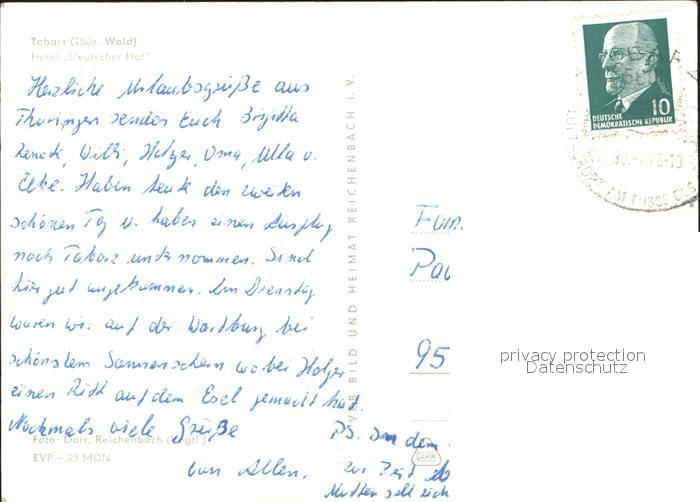 Tabarz (Thür. Wald)
Hotel „Deutscher Hof"
Herzliche Urlaubsgrüße aus
Thüringen senden Euch Brigitta
Willi, Holger, Oma, Ulla u.
Elke. Haben heute den zweiten
schönen Tag u. haben einen Ausflug
nach Tabarz unternommen. Sind
hier gut angekommen. Am Dienstag
waren wir auf der Wartburg bei
schönstem Sonnenschein wobei Holger
einen Ritt auf dem Esel gemacht hat.
Nochmals viele Grüße
von Allen.
PS. In dem
zur Zeit
Mutter
Foto: Darr, Reichenbach (Vogtl.)
EVP –,25 MDN
VEB BILD UND HEIMAT REICHENBACH i. V.
DEUTSCHE
DEMOKRATISCHE REPUBLIK
10
AM FUSSE DES
Fam.
Pau
95
privacy protection
Datenschutz